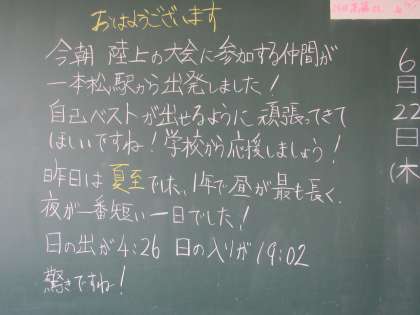 おはようございます
今朝 陸上の大会に参加する仲間が
一本松駅から出発しました！
自己ベストが出せるように頑張ってきて
ほしいですね！学校から応援しましょう！
昨日は夏至でした、1年で昼が最も長く、
夜が一番短い一日でした！
日の出が4:26 日の入りが19:02
驚きですね！
6月22日(木